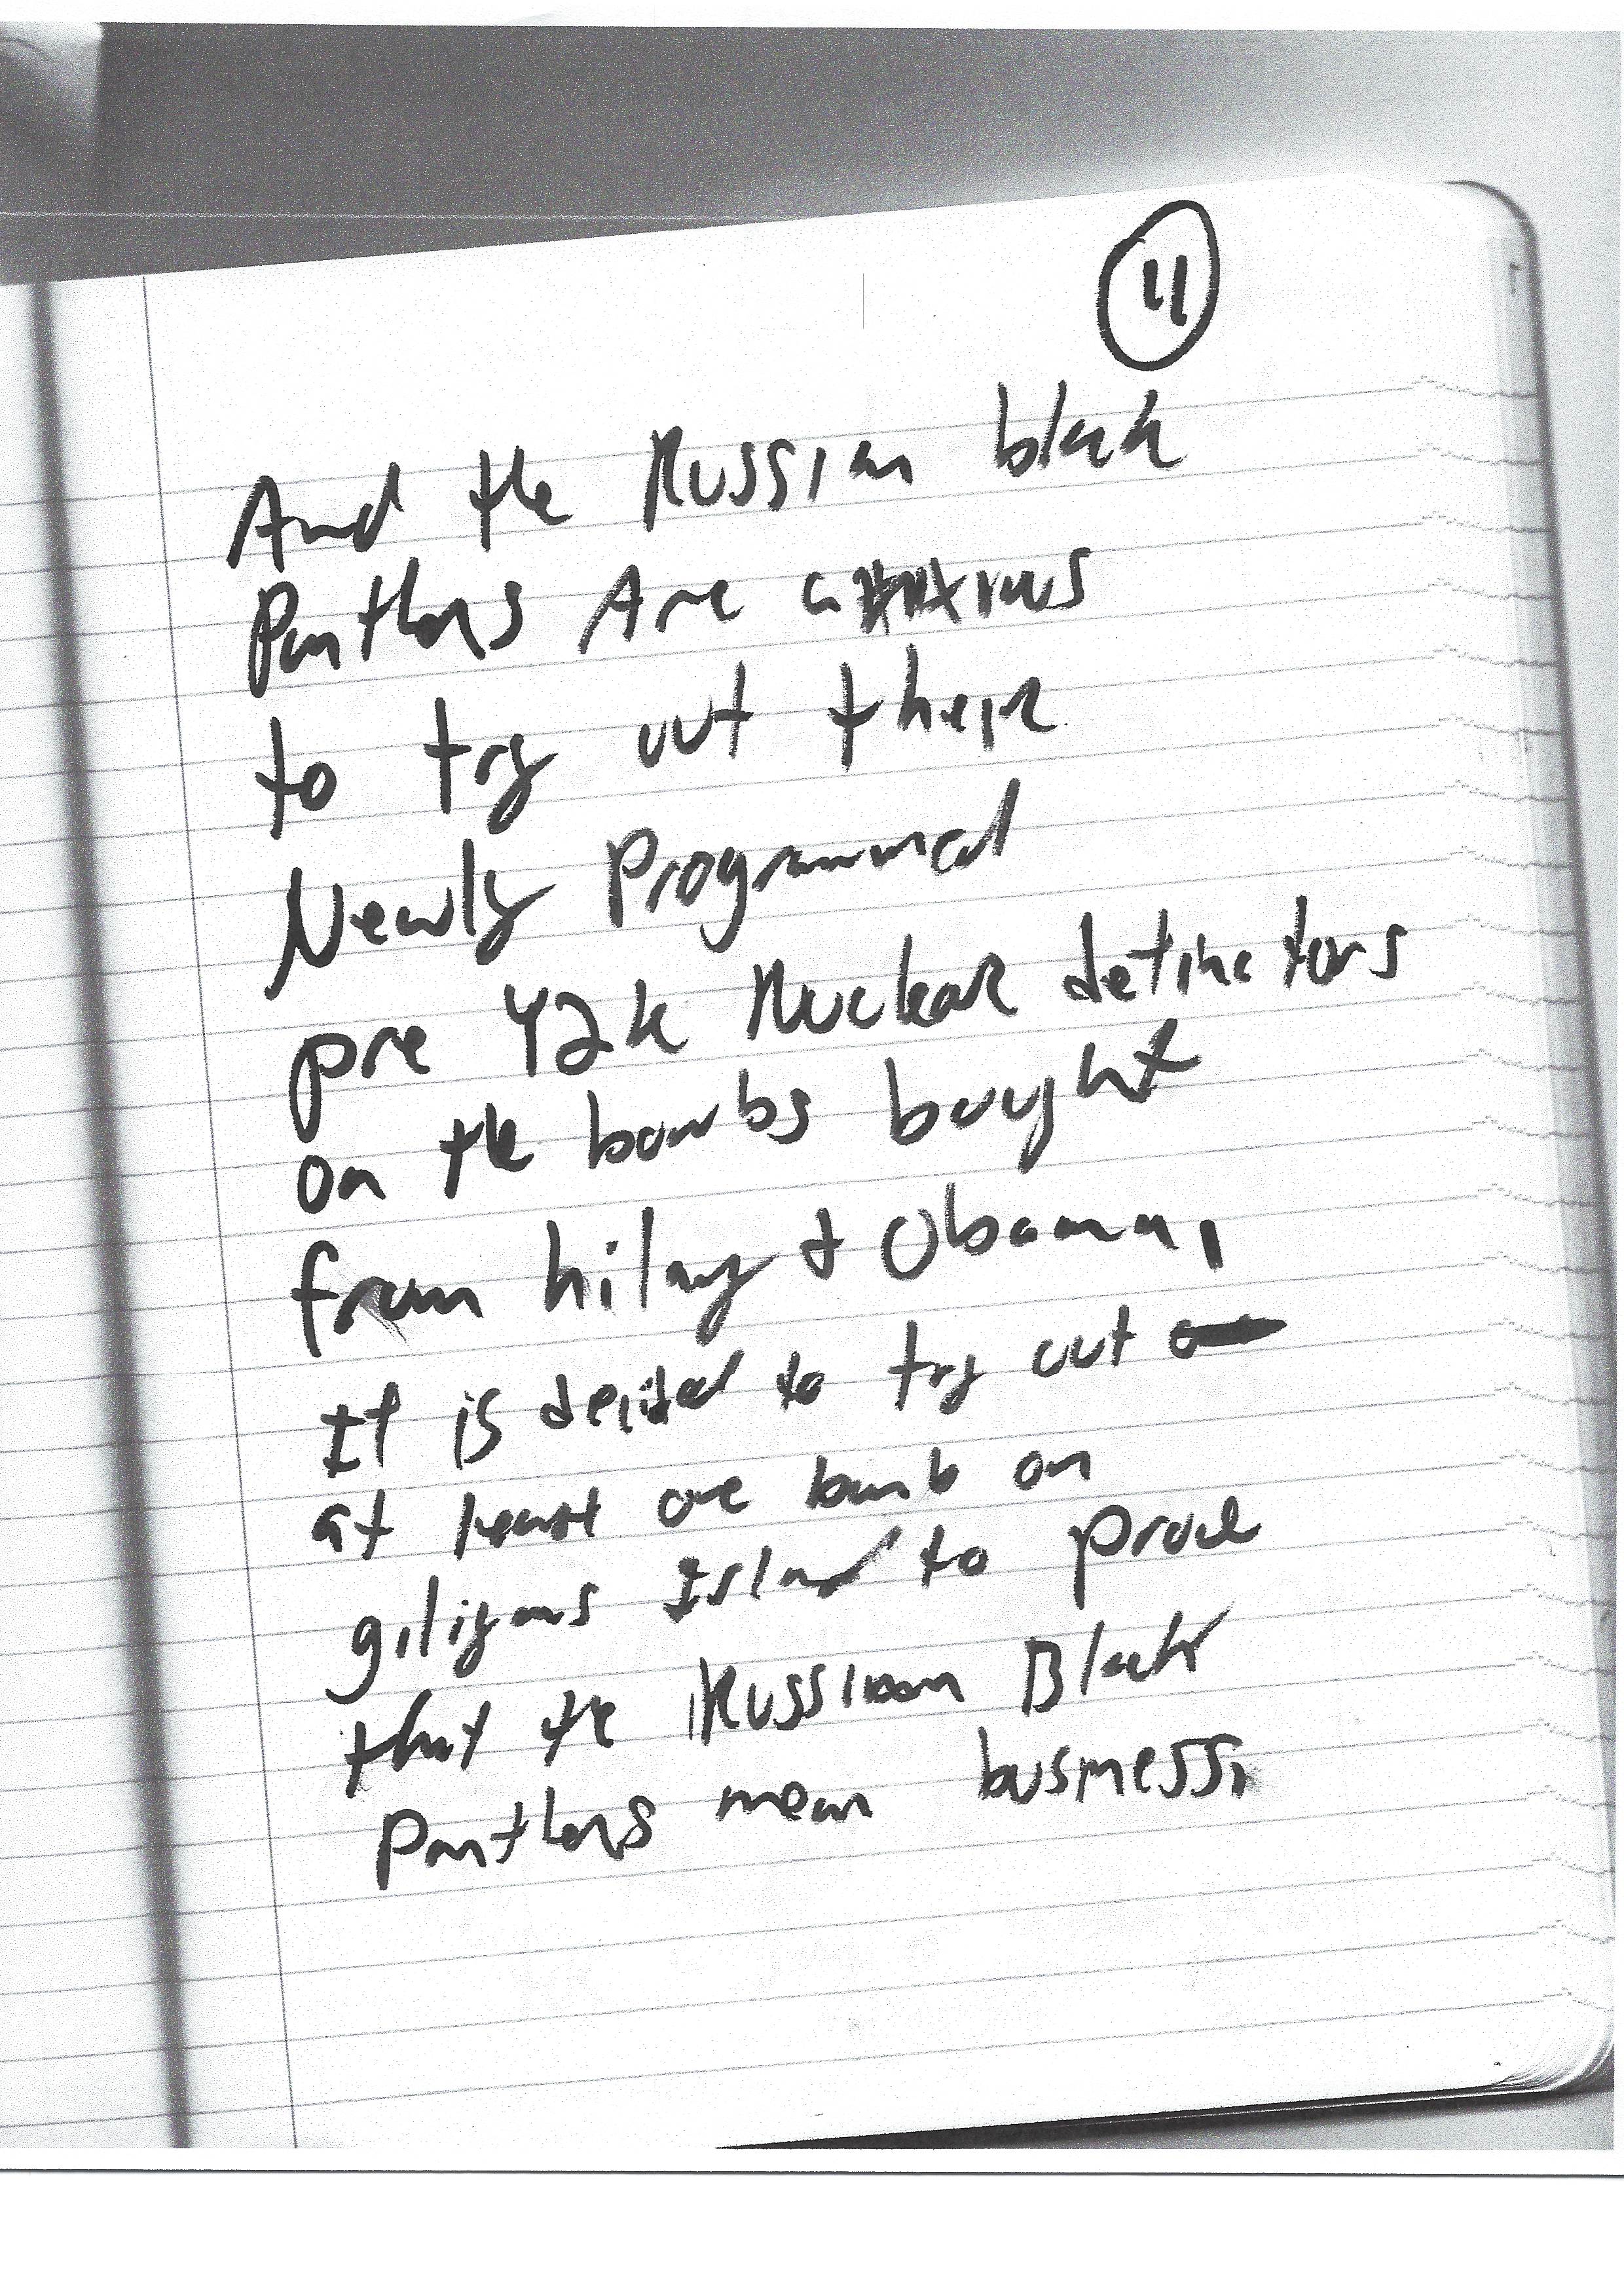 11
And the Russian black
Panthers Are anxious
to try out their
Newly Programmed
pre Y2k Nuclear detinctors
on the bombs bought
from hilary & Obama,
It is decided to try out
at least one bomb on
giligans Island to prove
that the Russian Black
Panthers mean business.